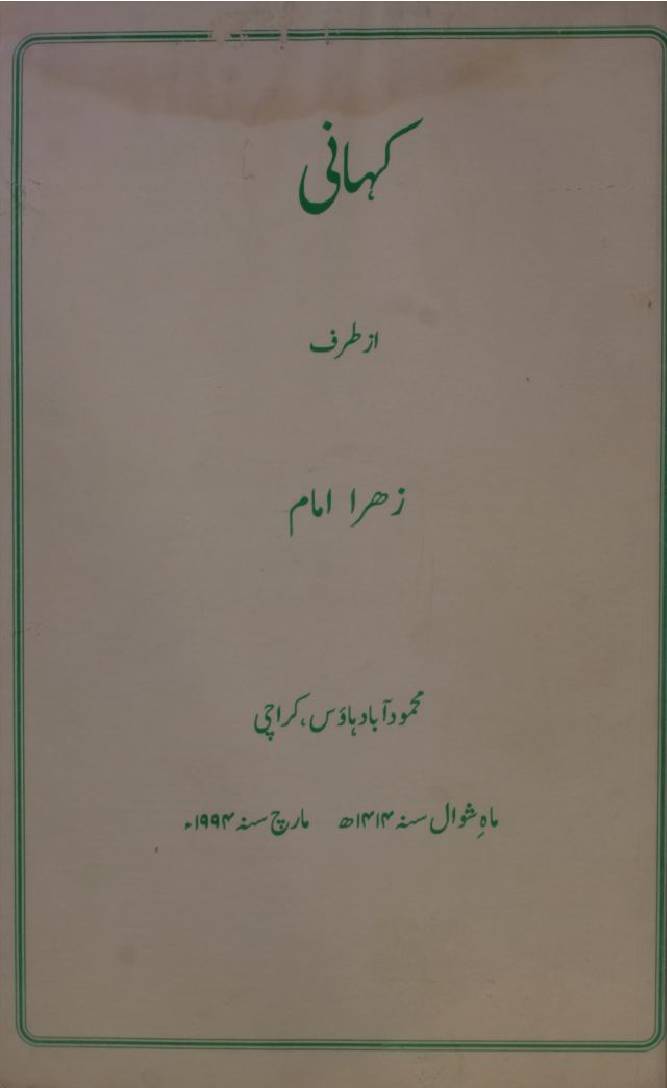 کہانی
از طرف
زھرا امام
محمودآباد ہاؤس، کراچی
ماہِ شوال سنہ ۱۴۱۴ھ مارچ سنہ ۱۹۹۴ء